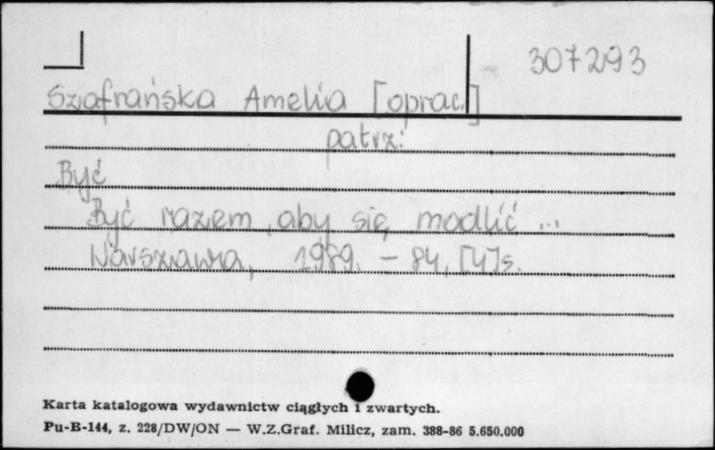 307293
Szafrańska Amelia [oprac.]
patrz:
Być
Być razem, aby się modlić ...
Warszawa, 1989. – 84, [4]s.
Karta katalogowa wydawnictw ciągłych i zwartych.
Pu-B-144, z. 228/DW/ON — W.Z.Graf. Milicz, zam. 388-86 5.650.000